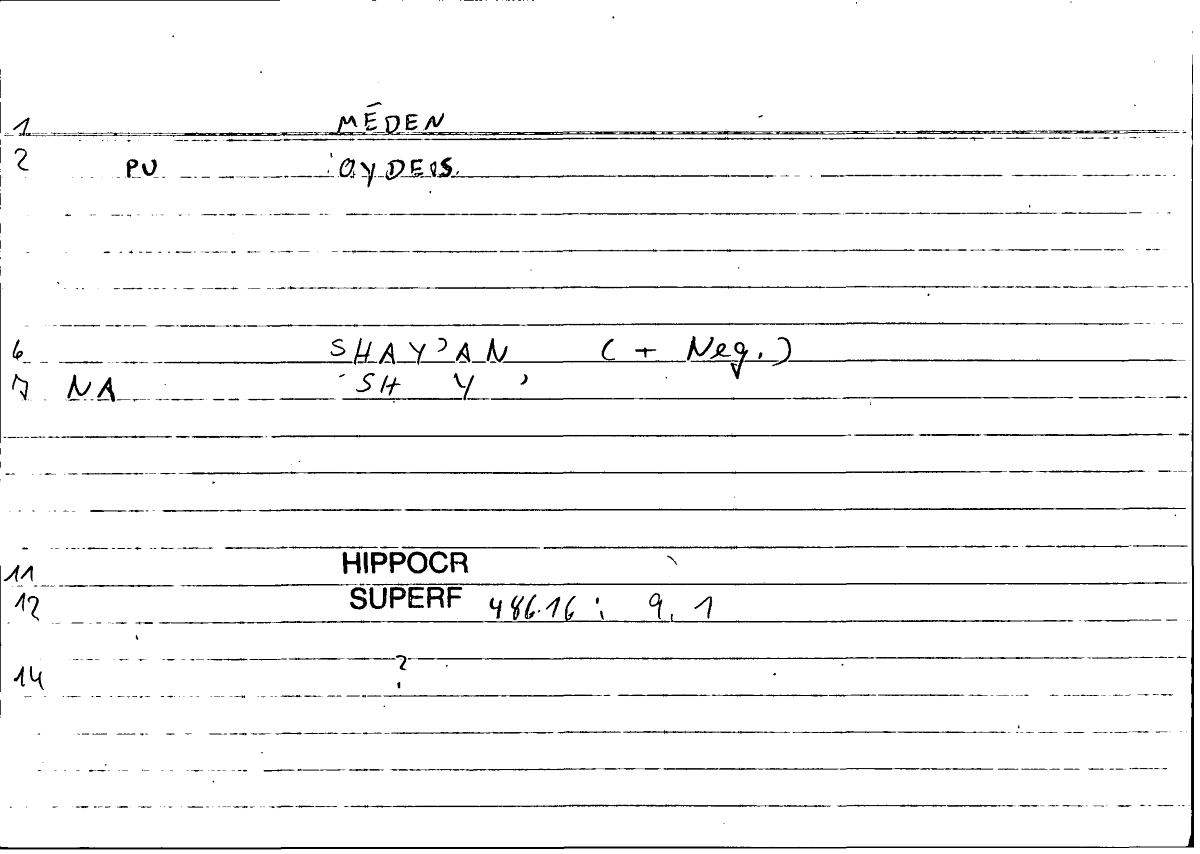 1 MĒDEN
2 PU OYDEIS.
6 SHAY'AN (+ Neg.)
7 NA SH Y '
11 HIPPOCR
12 SUPERF 486.16 ; 9, 1
14 ?